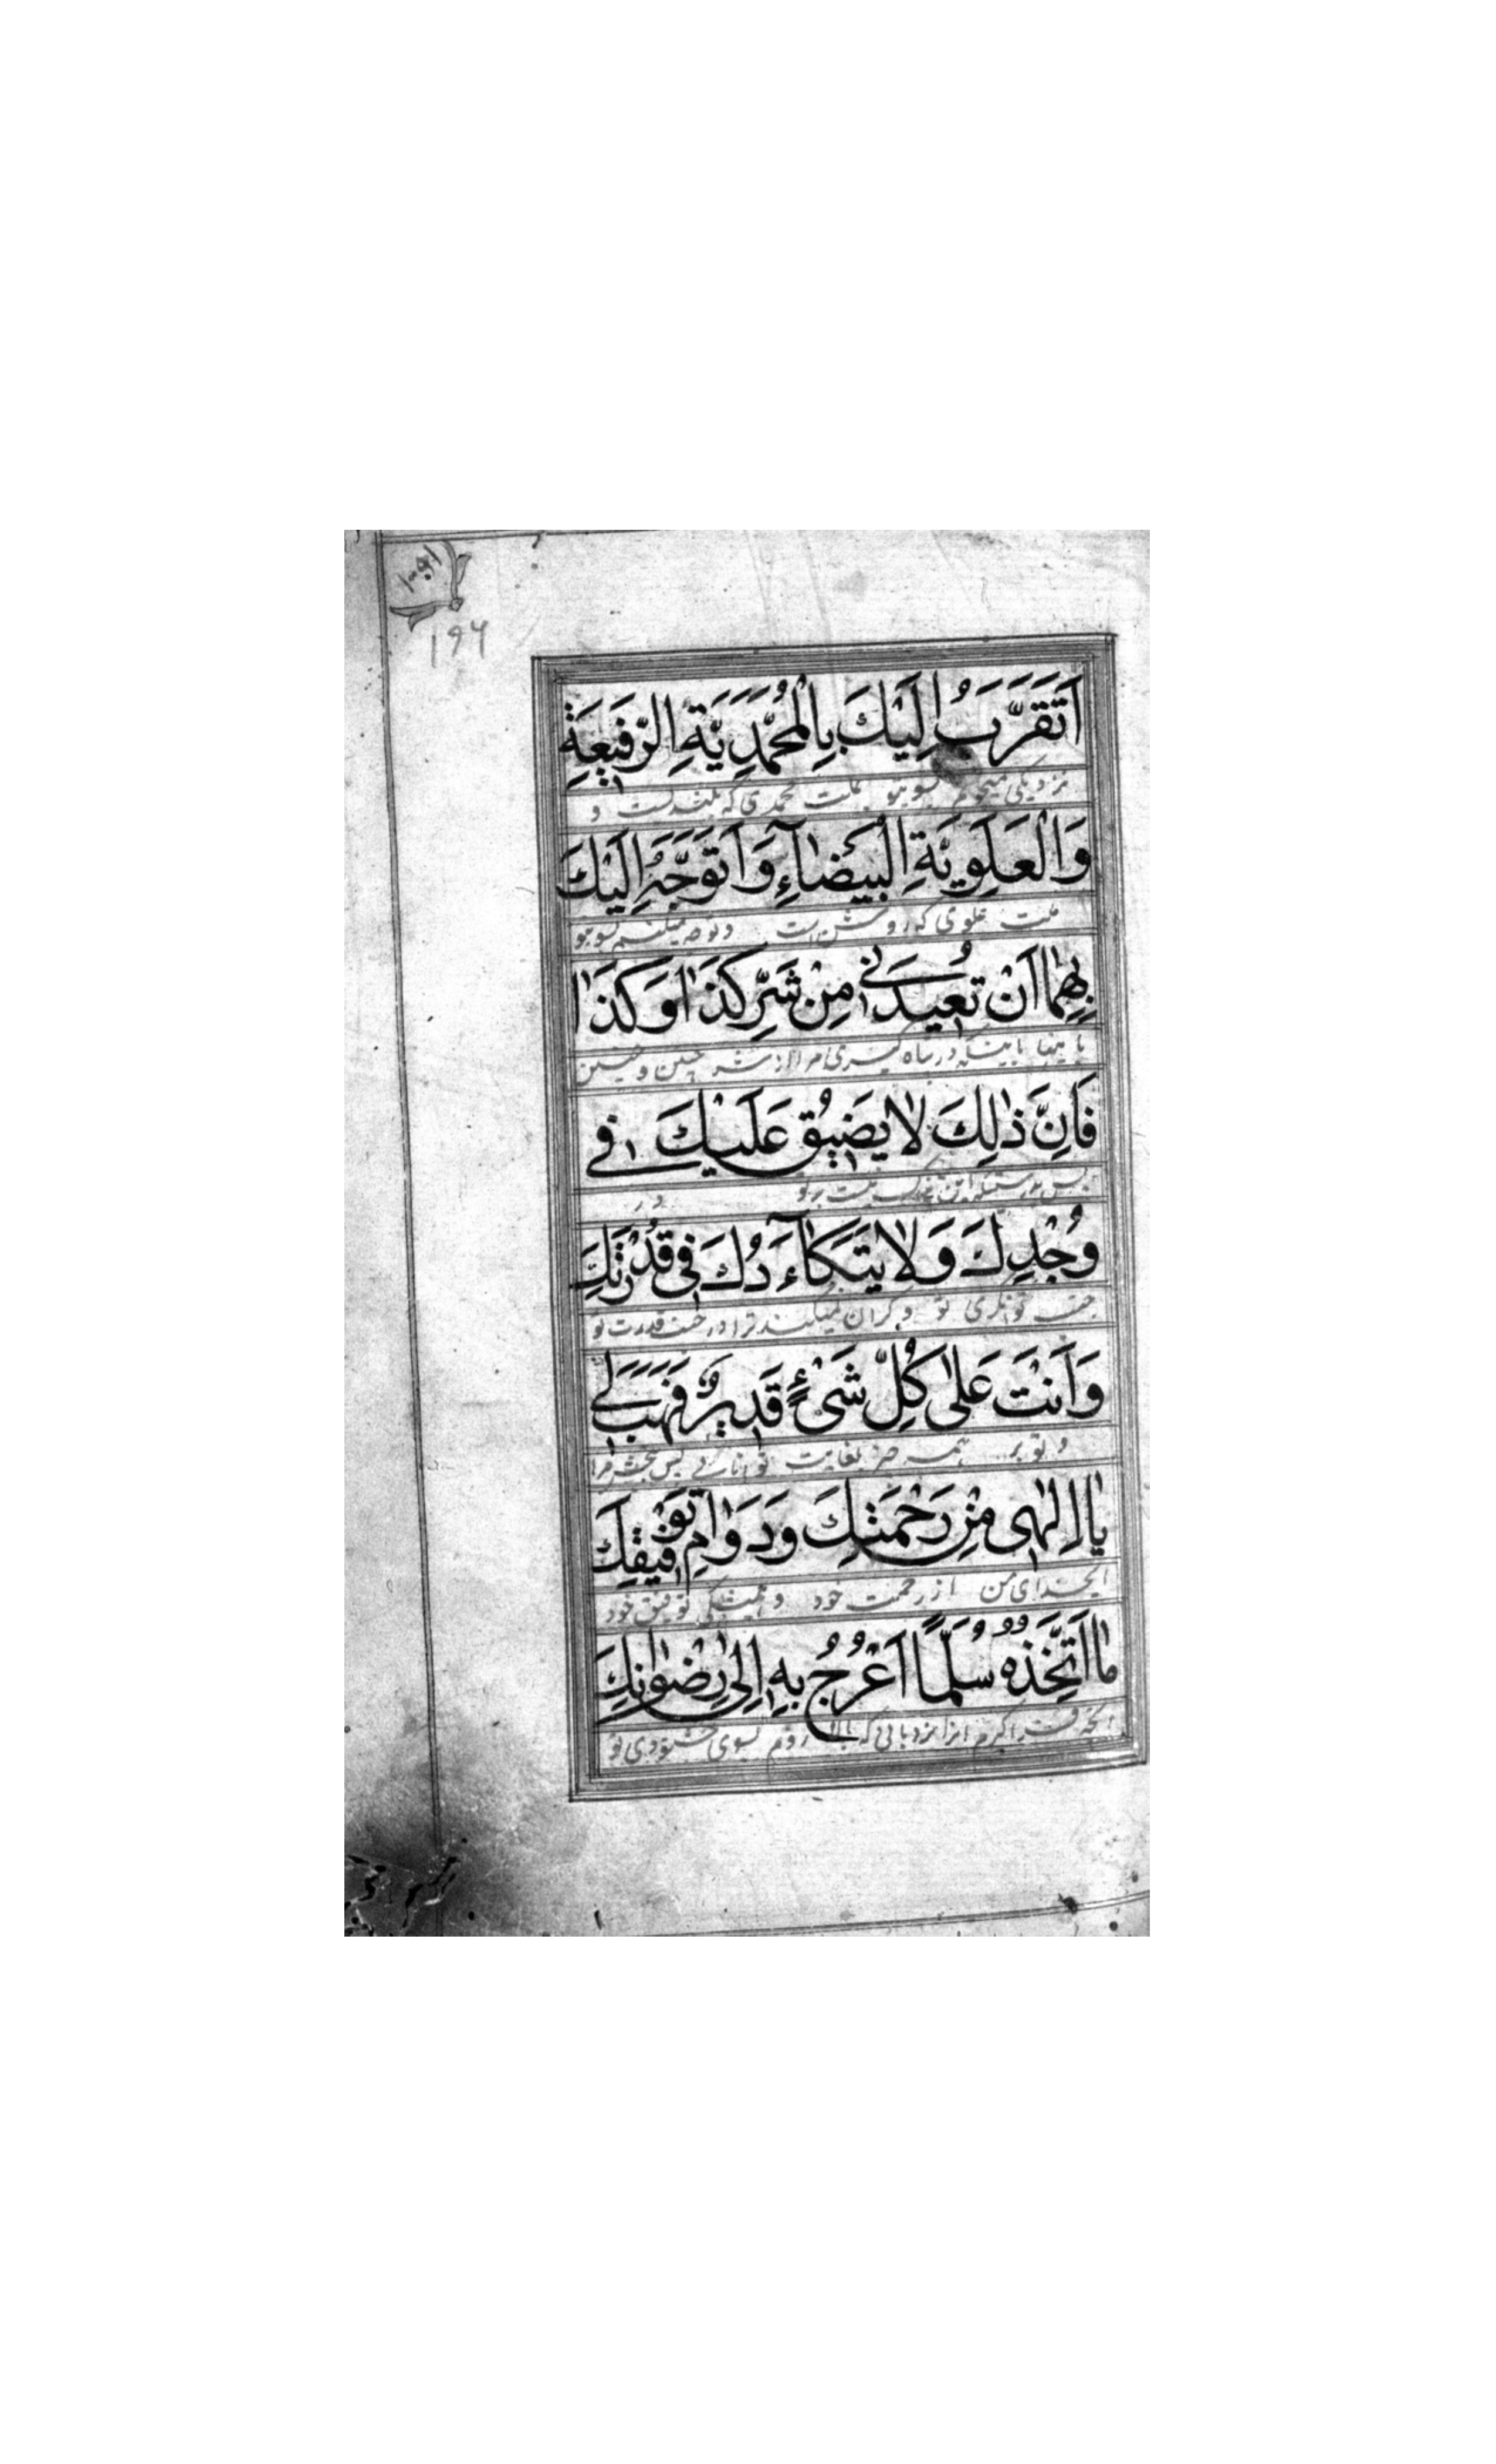 ١٩٦
اَتَقَرَّبُ اِلَيْكَ بِالْمُحَمَّدِيَّةِ الرَّفيعَةِ
نزدیکی میجویم بسویتو بملت محمدی که بلندست و
وَالْعَلَوِيَّةِ الْبَيْضآءِ وَاَتَوَجَّهُ اِلَيْكَ
ملت علوی که روشن است و توجه میکنم بسویتو
بِهِمٰا اَنْ تُعيذَني مِنْ شَرِّ كَذٰا وَكَذٰا
باینها باینکه در پناه گیری مرا از شر چنین و چنین
فَاِنَّ ذٰلِكَ لٰا يَضيقُ عَلَيْكَ في
پس بدرستیکه این تنگ نیست بر تو در
وُجْدِكَ وَلٰا يَتَكٰاءَدُكَ في قُدْرَتِكَ
جنب توانگری تو و گران نمیکند ترا در جنب قدرت تو
وَاَنْتَ عَلىٰ كُلِّ شَيْءٍ قَديرٌ فَهَبْ لي
و تو بر همه چیز بغایت توانائی پس ببخش مرا
يٰا اِلٰهي مِنْ رَحْمَتِكَ وَدَوٰامِ تَوْفيقِكَ
ایخدای من از رحمت خود و همیشگی توفیق خود
مٰا اَتَّخِذُهُ سُلَّمًا اَعْرُجُ بِهِ اِلىٰ رِضْوٰانِكَ
آنچه فرا گیرم انرا نردبانی که بالا روم بسوی خشنودی تو